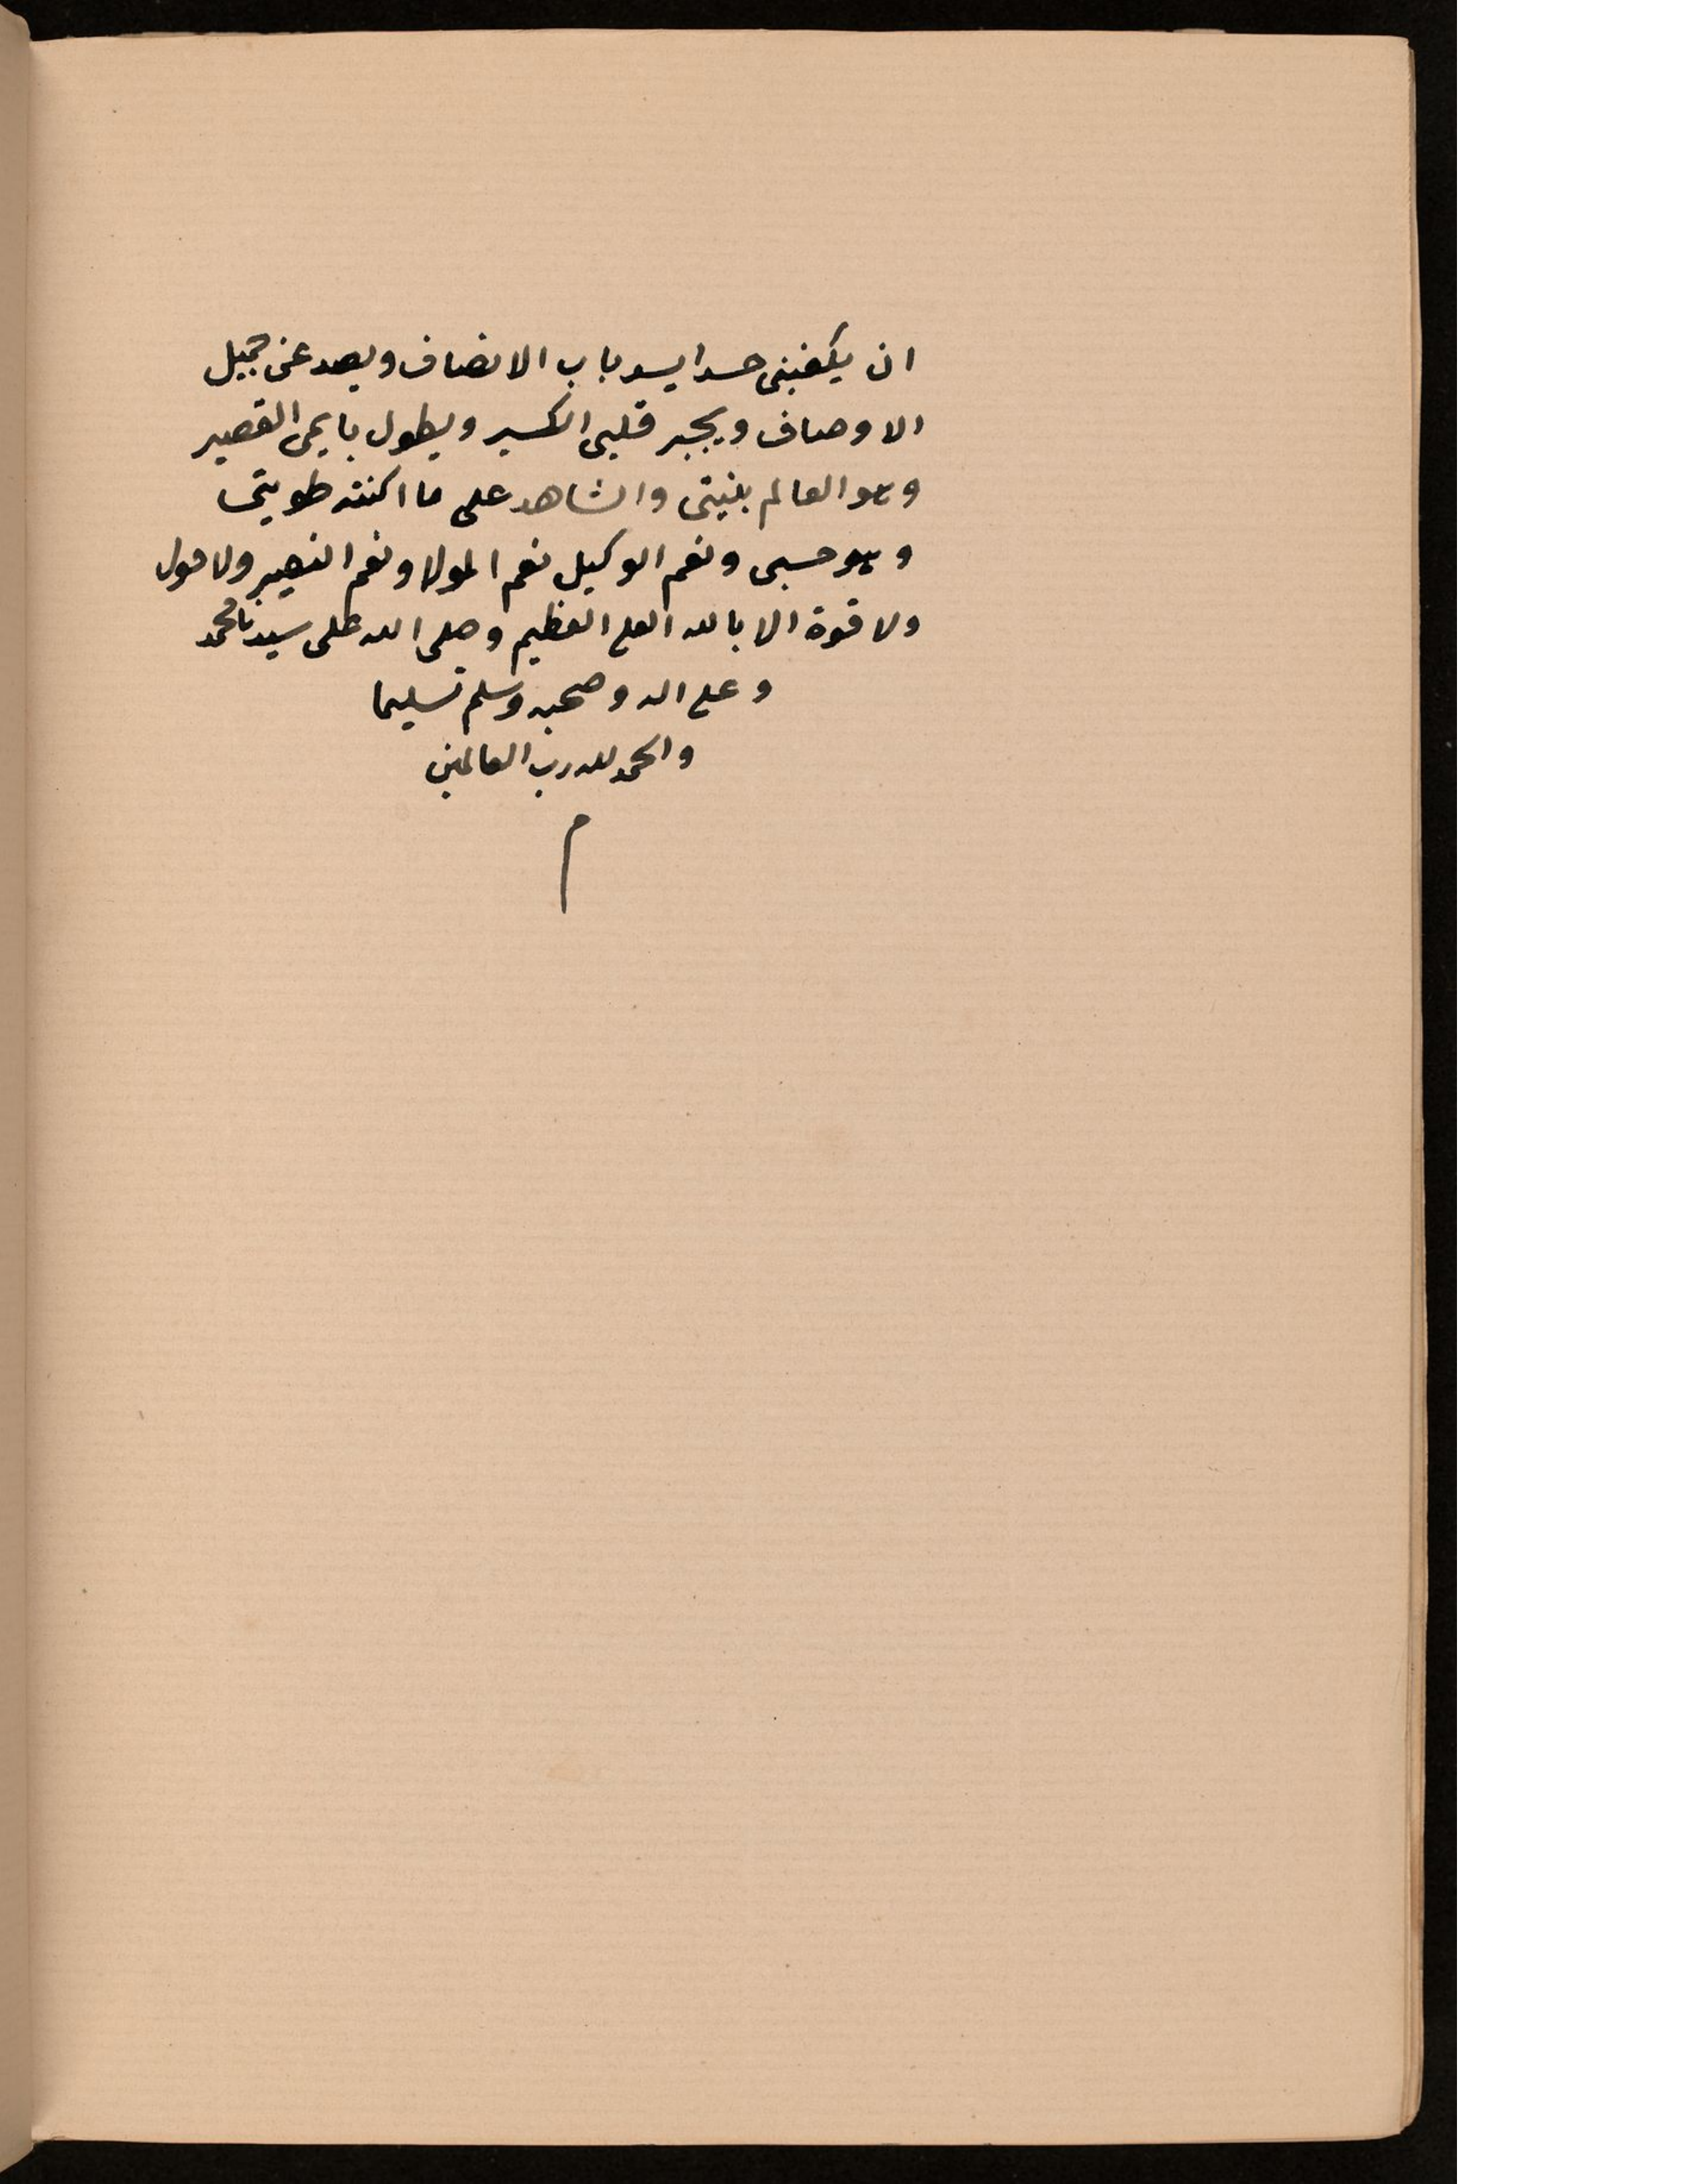 ان يكفينى حسدا يسد باب الانصاف ويصد عن جميل
الاوصاف ويجبر قلبى الكسير ويطول باعى القصير
وهو العالم بنيتى والشاهد على ما اكنته طويتى
وهو حسبى ونعم الوكيل نعم المولا ونعم النصير ولا حول
ولا قوة الا بالله العلى العظيم وصلى الله على سيدنا محمد
وعلى اله وصحبه وسلم تسليما
والحمد لله رب العالمين
م